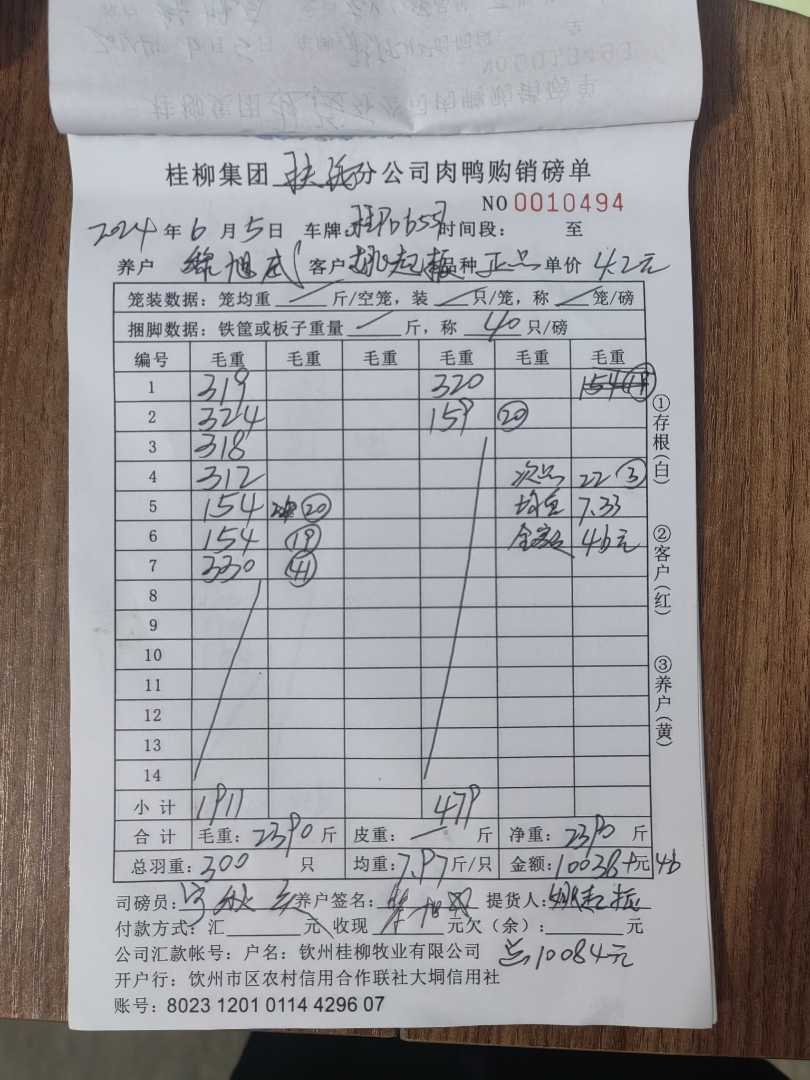 桂柳集团 分公司肉鸭购销磅单
NO 0010494
2024 年 6 月 5 日 车牌: 时间段: 至
养户 徐旭武 客户 姚起振 品种 正品 单价 4.2元
笼装数据: 笼均重 斤/空笼, 装 只/笼, 称 笼/磅
捆脚数据: 铁筐或板子重量 斤, 称 40 只/磅
编号 毛重 毛重 毛重 毛重 毛重 毛重
1 319 320 154
2 324 159 ⑳
3 318
4 312 次品 22 ③
5 154 ⑳ 均重 7.33
6 154 ⑲ 金额 46元
7 330 ㊶
8
9
10
11
12
13
14
小计 1911 479
合计 毛重: 2390 斤 皮重: 斤 净重: 2390 斤
总羽重: 300 只 均重: 7.97 斤/只 金额: 10038+元46
司磅员: 养户签名: 提货人: 姚起振
付款方式: 汇 元 收现 元欠(余): 元
公司汇款帐号: 户名: 钦州桂柳牧业有限公司 总10084元
开户行: 钦州市区农村信用合作联社大垌信用社
账号: 8023 1201 0114 4296 07
①存根(白)
②客户(红)
③养户(黄)